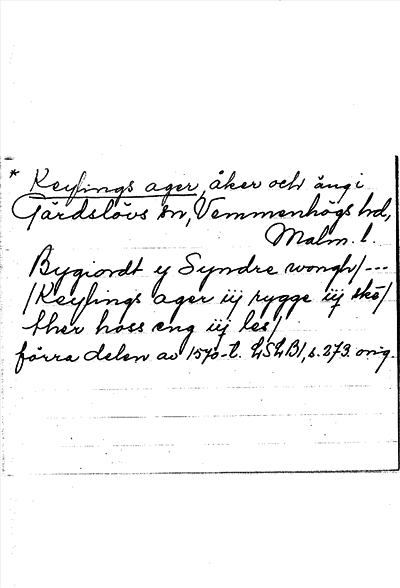 * Keyfings ager, åker och äng i
Gärdslövs sn, Vemmenhögs hd,
Malm. l.
Bygiordt y Syndre wongh/---
/Keyfings ager iij rygge iij skå/
ther hoss eng iij les/
förra delen av 1570-t. LSLB1, s. 273. orig.